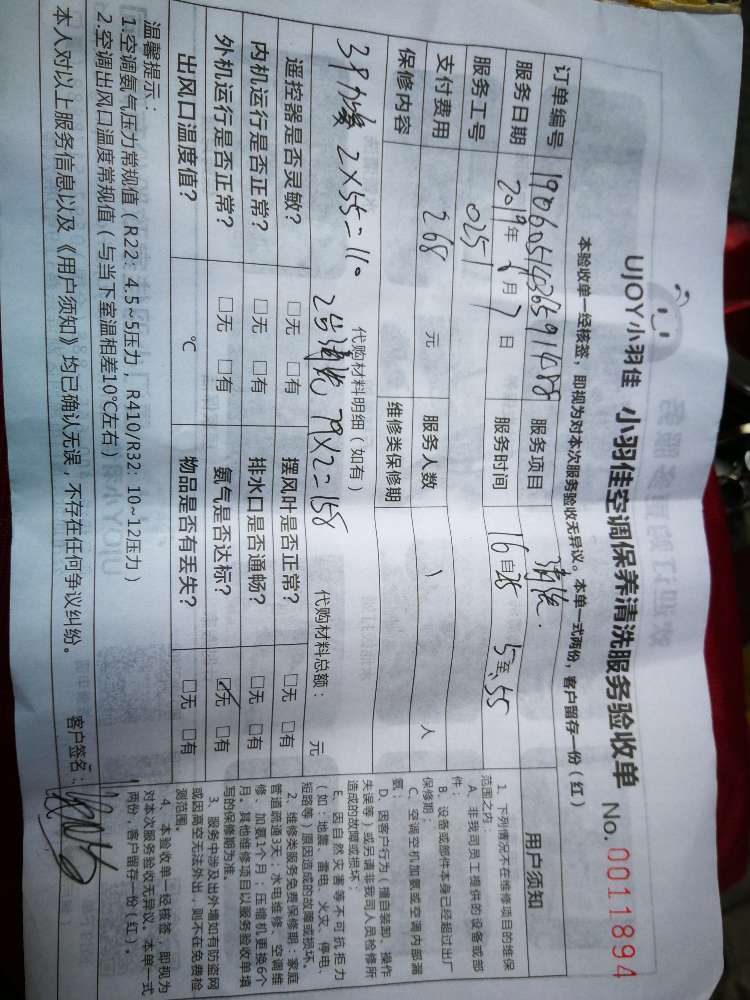 UJOY小羽佳 小羽佳空调保养清洗服务验收单 No. 0011894
本验收单一经核签，即视为对本次服务验收无异议。本单一式两份，客户留存一份（红）
订单编号 服务项目 清洗
服务日期 2019年 8月 7日 服务时间 16自25 至55
服务工号 0251
支付费用 268 元 服务人数 1 人
保修内容 维修类保修期
代购材料明细（如有） 代购材料总额： 元
2×55=110 2台清洗 79×2=158
遥控器是否灵敏？ □无 □有 摆风叶是否正常？ □无 □有
内机运行是否正常？ □无 □有 排水口是否通畅？ □无 □有
外机运行是否正常？ □无 □有 氨气是否达标？ ☑无 □有
出风口温度值？ ℃ 物品是否有丢失？ □无 □有
温馨提示：
1.空调氨气压力常规值（R22：4.5~5压力，R410/R32：10~12压力）
2.空调出风口温度常规值（与当下室温相差10℃左右）
本人对以上服务信息以及《用户须知》均已确认无误，不存在任何争议纠纷。 客户签名：
用户须知
1、下列情况不在维修项目的维保
范围之内：
A、非我司员工提供的设备或部
件；
B、设备或部件本身已经超过出厂
保修期；
C、空调空机加氨或空调内部漏
氨；
D、因客户行为（擅自装卸、操作
失误等）或另请非我司人员检修所
造成的故障或损坏；
E、因自然灾害等不可抗拒力
（如：地震、雷电、火灾、停电、
短路等）原因造成的故障或损坏。
2、维修类服务免费保修期：家庭
管道疏通3天；水电维修、空调维
修、加氨1个月；压缩机更换6个
月。其他维修项目以服务验收单填
写的保修期为准。
3、服务中涉及出外墙如有防盗网
或因高空无法外出，则不在免费检
测范围。
4、本验收单一经核签，即视为
对本次服务验收无异议。本单一式
两份，客户留存一份（红）。